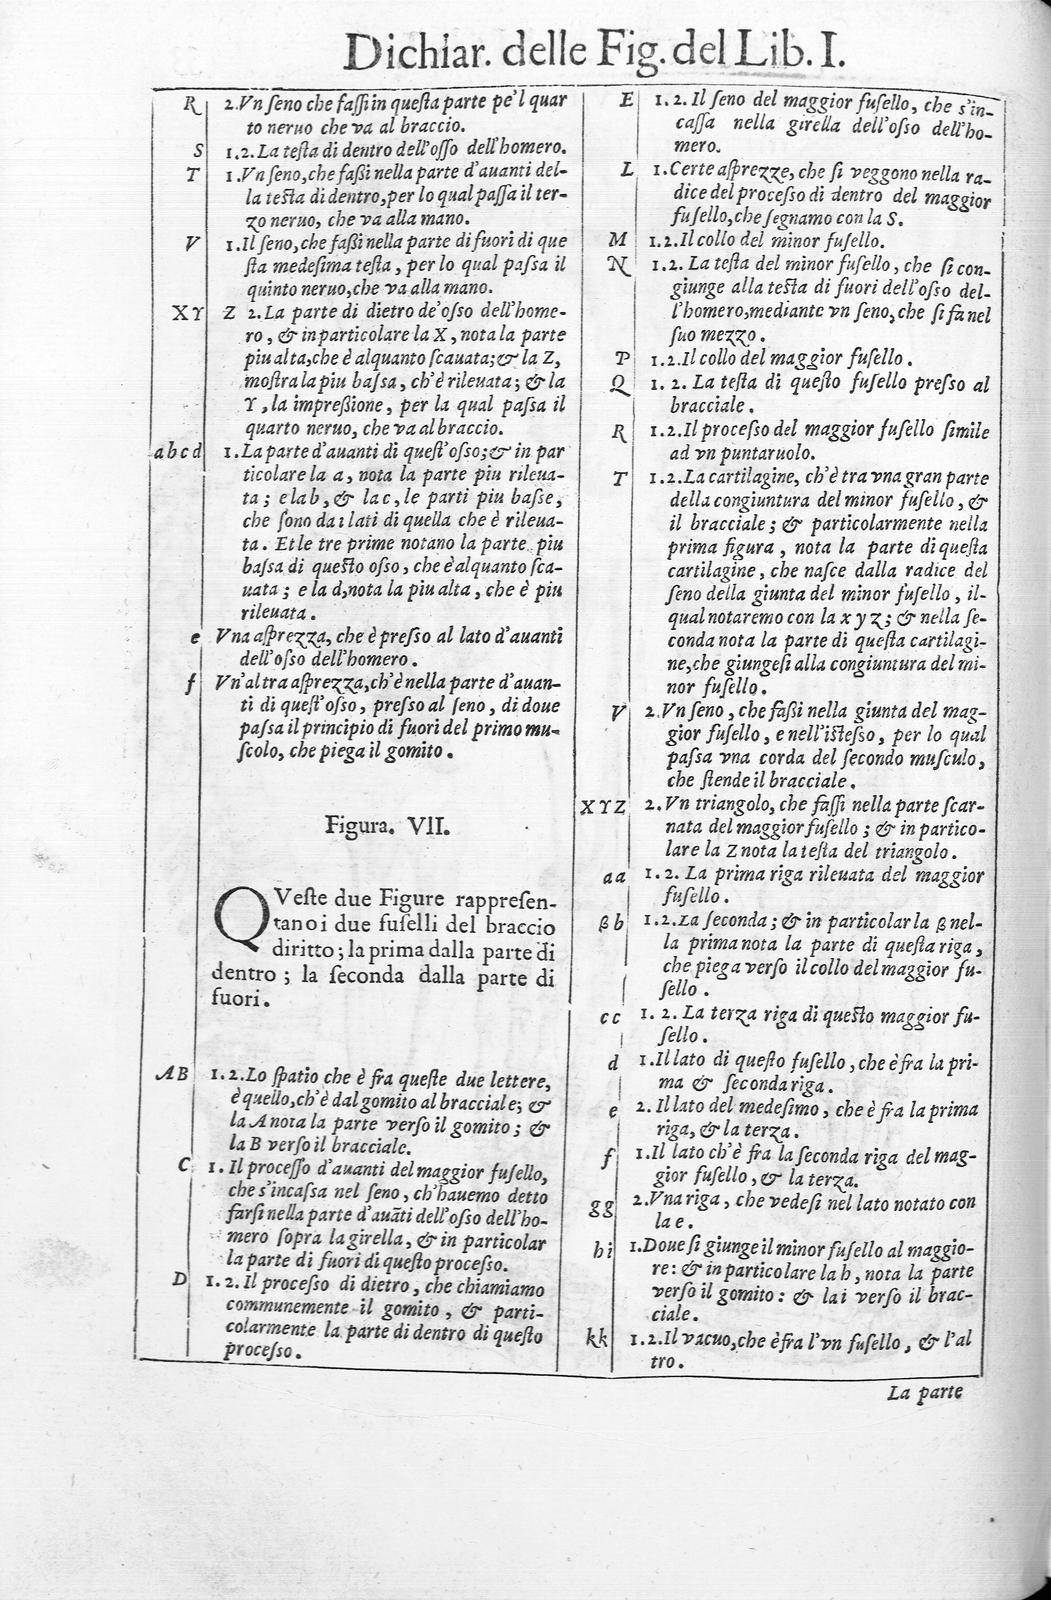 Dichiar. delle Fig. del Lib. I.
R 2. Vn ſeno che faſſi in queſta parte pe'l quar
to neruo che va al braccio.
S 1. 2. La teſta di dentro dell'oſſo dell'homero.
T 1. Vn ſeno, che faßi nella parte d'auanti del-
la teſta di dentro, per lo qual paſſa il ter-
zo neruo, che va alla mano.
V 1. Il ſeno, che faßi nella parte di fuori di que
ſta medeſima teſta, per lo qual paſsa il
quinto neruo, che va alla mano.
XY Z 2. La parte di dietro de'oſso dell'home-
ro, & in particolare la X, nota la parte
piu alta, che è alquanto ſcauata; & la Z,
moſtra la piu baſsa, ch'è rileuata; & la
Y, la impreßione, per la qual paſsa il
quarto neruo, che va al braccio.
abcd 1. La parte d'auanti di queſt'oſso; & in par
ticolare la a, nota la parte piu rileua-
ta; e la b, & la c, le parti piu baſse,
che ſono da i lati di quella che è rileua-
ta. Et le tre prime notano la parte piu
baſsa di queſto oſso, che è alquanto ſca-
uata; e la d, nota la piu alta, che è piu
rileuata.
e Vna aſprezza, che è preſso al lato d'auanti
dell'oſso dell'homero.
f Vn'altra aſprezza, ch'è nella parte d'auan-
ti di queſt'oſso, preſso al ſeno, di doue
paſsa il principio di fuori del primo mu-
ſcolo, che piega il gomito.
Figura. VII.
QVeſte due Figure rappreſen-
tano i due fuſelli del braccio
diritto; la prima dalla parte di
dentro; la ſeconda dalla parte di
fuori.
AB 1. 2. Lo ſpatio che è fra queſte due lettere,
è quello, ch'è dal gomito al bracciale; &
la A nota la parte verſo il gomito; &
la B verſo il bracciale.
C 1. Il proceſſo d'auanti del maggior fuſello,
che s'incaſsa nel ſeno, ch'hauemo detto
farſi nella parte d'auāti dell'oſso dell'ho-
mero ſopra la girella, & in particolar
la parte di fuori di queſto proceſso.
D 1. 2. Il proceſso di dietro, che chiamiamo
communemente il gomito, & parti-
colarmente la parte di dentro di queſto
proceſso.
E 1. 2. Il ſeno del maggior fuſello, che s'in-
caſſa nella girella dell'oſso dell'ho-
mero.
L 1. Certe aſprezze, che ſi veggono nella ra-
dice del proceſso di dentro del maggior
fuſello, che ſegnamo con la S.
M 1. 2. Il collo del minor fuſello.
N 1. 2. La teſta del minor fuſello, che ſi con-
giunge alla teſta di fuori dell'oſso del-
l'homero, mediante vn ſeno, che ſi fa nel
ſuo mezzo.
P 1. 2. Il collo del maggior fuſello.
Q 1. 2. La teſta di queſto fuſello preſso al
bracciale.
R 1. 2. Il proceſso del maggior fuſello ſimile
ad vn puntaruolo.
T 1. 2. La cartilagine, ch'è tra vna gran parte
della congiuntura del minor fuſello, &
il bracciale; & particolarmente nella
prima figura, nota la parte di queſta
cartilagine, che naſce dalla radice del
ſeno della giunta del minor fuſello, il-
qual notaremo con la x y z; & nella ſe-
conda nota la parte di queſta cartilagi-
ne, che giungeſi alla congiuntura del mi-
nor fuſello.
V 2. Vn ſeno, che faßi nella giunta del mag-
gior fuſello, e nell'iſteſso, per lo qual
paſsa vna corda del ſecondo muſculo,
che ſtende il bracciale.
XYZ 2. Vn triangolo, che faſſi nella parte ſcar-
nata del maggior fuſello; & in partico-
lare la Z nota la teſta del triangolo.
aa 1. 2. La prima riga rileuata del maggior
fuſello.
β b 1. 2. La ſeconda; & in particolar la β nel-
la prima nota la parte di queſta riga,
che piega verſo il collo del maggior fu-
ſello.
cc 1. 2. La terza riga di queſto maggior fu-
ſello.
d 1. Il lato di queſto fuſello, che è fra la pri-
ma & ſeconda riga.
e 2. Il lato del medeſimo, che è fra la prima
riga, & la terza.
f 1. Il lato ch'è fra la ſeconda riga del mag-
gior fuſello, & la terza.
gg 2. Vna riga, che vedeſi nel lato notato con
la e.
hi 1. Doue ſi giunge il minor fuſello al maggio-
re: & in particolare la h, nota la parte
verſo il gomito: & la i verſo il brac-
ciale.
kk 1. 2. Il vacuo, che è fra l'vn fuſello, & l'al
tro.
La parte